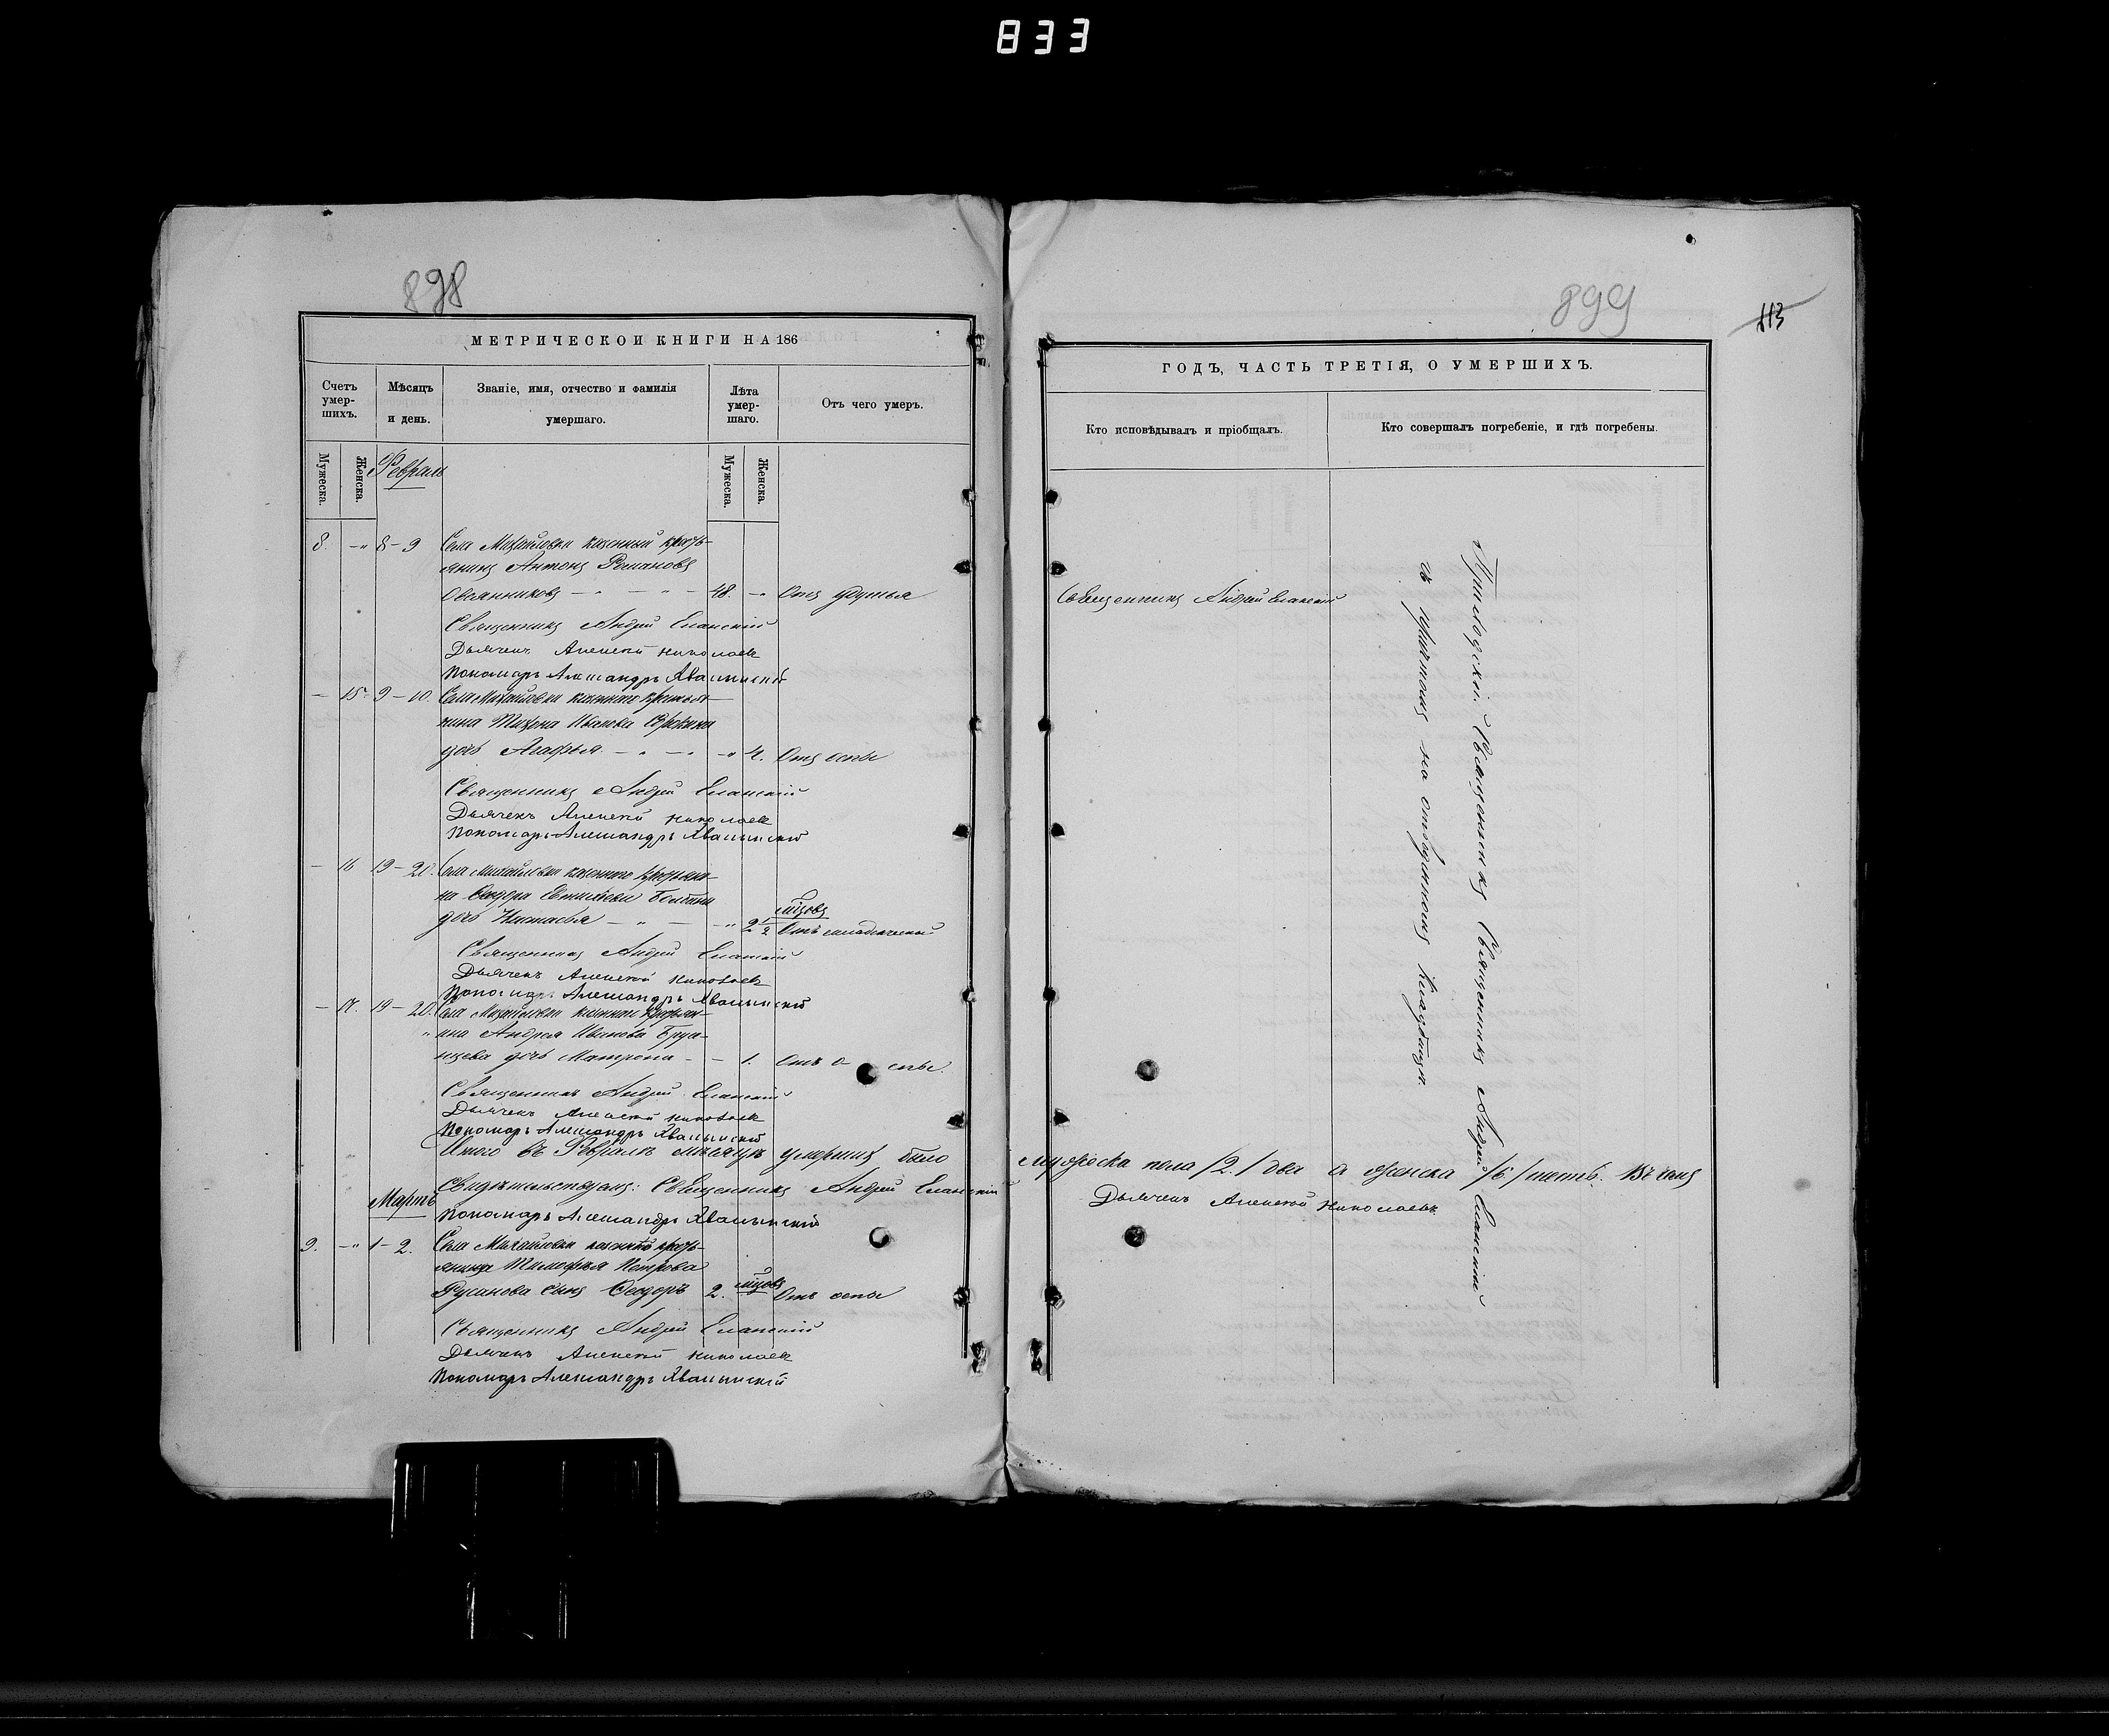 833
898
МЕТРИЧЕСКОЙ КНИГИ НА 186
Счетъ умер-шихъ.
Мѣсяцъ и день.
Званіе, имя, отчество и фамилія умершаго.
Лѣта умер-шаго.
Отъ чего умеръ.
Мужеска.
Женска.
Февраль
Мужеска.
Женска.
8. -„ 8-9 Села Михайловки казенный кресть-
янинъ Антонъ Романовъ
Овсянниковъ 48. Отъ удушья
Священникъ Андрей Еланскій
Дьячекъ Алексѣй Николаевъ
Пономарь Александръ Хвалынскій
- 15. 9-10. Села Михайловки казеннаго крестья-
нина Тихона Иванова
дочь Агафья 4. Отъ оспы
Священникъ Андрей Еланскій
Дьячекъ Алексѣй Николаевъ
Пономарь Александръ Хвалынскій
- 16 19-20. Села Михайловки казеннаго крестьяни-
на Ѳеодора
дочь Настасья 2 1/2 мцовъ Отъ младенческой
Священникъ Андрей Еланскій
Дьячекъ Алексѣй Николаевъ
Пономарь Александръ Хвалынскій
- 17. 19-20. Села Михайловки казеннаго крестьян-
ина Андрея Иванова
дочь Матрона 1. Отъ оспы.
Священникъ Андрей Еланскій
Дьячекъ Алексѣй Николаевъ
Пономарь Александръ Хвалынскій
Итого въ Февралѣ мѣсяцѣ умершихъ было
Свидѣтельствуемъ: Священникъ Андрей Еланскій
Мартъ
Пономарь Александръ Хвалынскій
9. -„ 1-2. Села Михайловки казеннаго кресть-
янина Тимофея Петрова
Русанова сынъ Ѳеодоръ 2. мцовъ Отъ оспы
Священникъ Андрей Еланскій
Дьячекъ Алексѣй Николаевъ
Пономарь Александръ Хвалынскій
899
113
ГОДЪ, ЧАСТЬ ТРЕТІЯ, О УМЕРШИХЪ.
Кто исповѣдывалъ и пріобщалъ.
Кто совершалъ погребеніе, и гдѣ погребены.
Священникъ Андрей Еланскій
Приходскій Священникъ Андрей Еланскій
на отведенномъ кладбищѣ.
мужеска пола /2/ два а женска /6/ шесть.
Дьячекъ Алексѣй Николаевъ